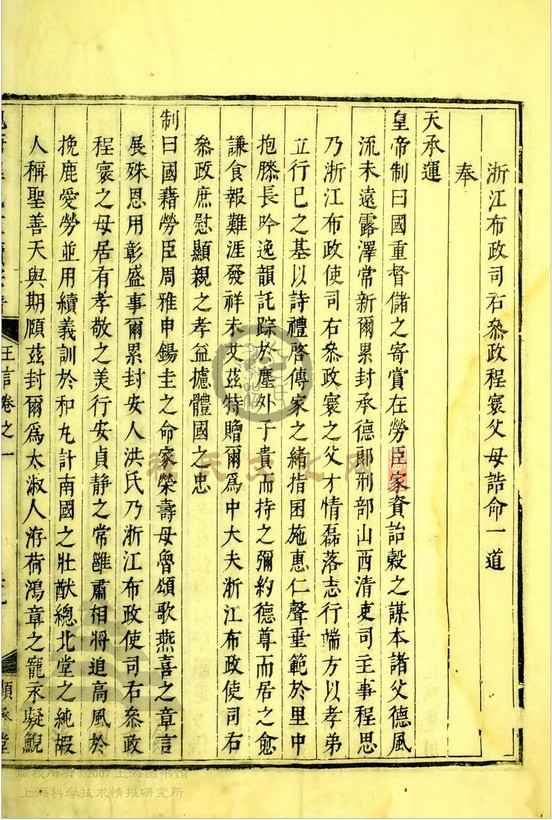 浙江布政司右參政程寰父母誥命一道
奉
天承運
皇帝制曰國重督儲之寄賞在勞臣家資詒穀之謀本諸父德風
流未遠露澤常新爾累封承德郎刑部山西清吏司主事程思
乃浙江布政使司右參政寰之父才情磊落志行端方以孝弟
立行己之基以詩禮啓傳家之緒指囷施惠仁聲垂範於里中
抱膝長吟逸韻託踪於塵外子貴而持之彌約德尊而居之愈
謙食報難涯發祥未艾茲特贈爾爲中大夫浙江布政使司右
參政庶慰顯親之孝益攄體國之忠
制曰國藉勞臣周雅申錫圭之命家榮壽母魯頌歌燕喜之章言
展殊恩用彰盛事爾累封安人洪氏乃浙江布政使司右參政
程寰之母居有孝敬之美行安貞静之常雝肅相將追高風於
挽鹿愛勞並用續義訓於和丸計南國之壯猷總北堂之純嘏
人稱聖善天與期頤茲封爾爲太淑人洊荷鴻章之寵永凝鯢
王言卷之一
順承堂
版权所有©2007上海图书馆
上海科学技术情报研究所